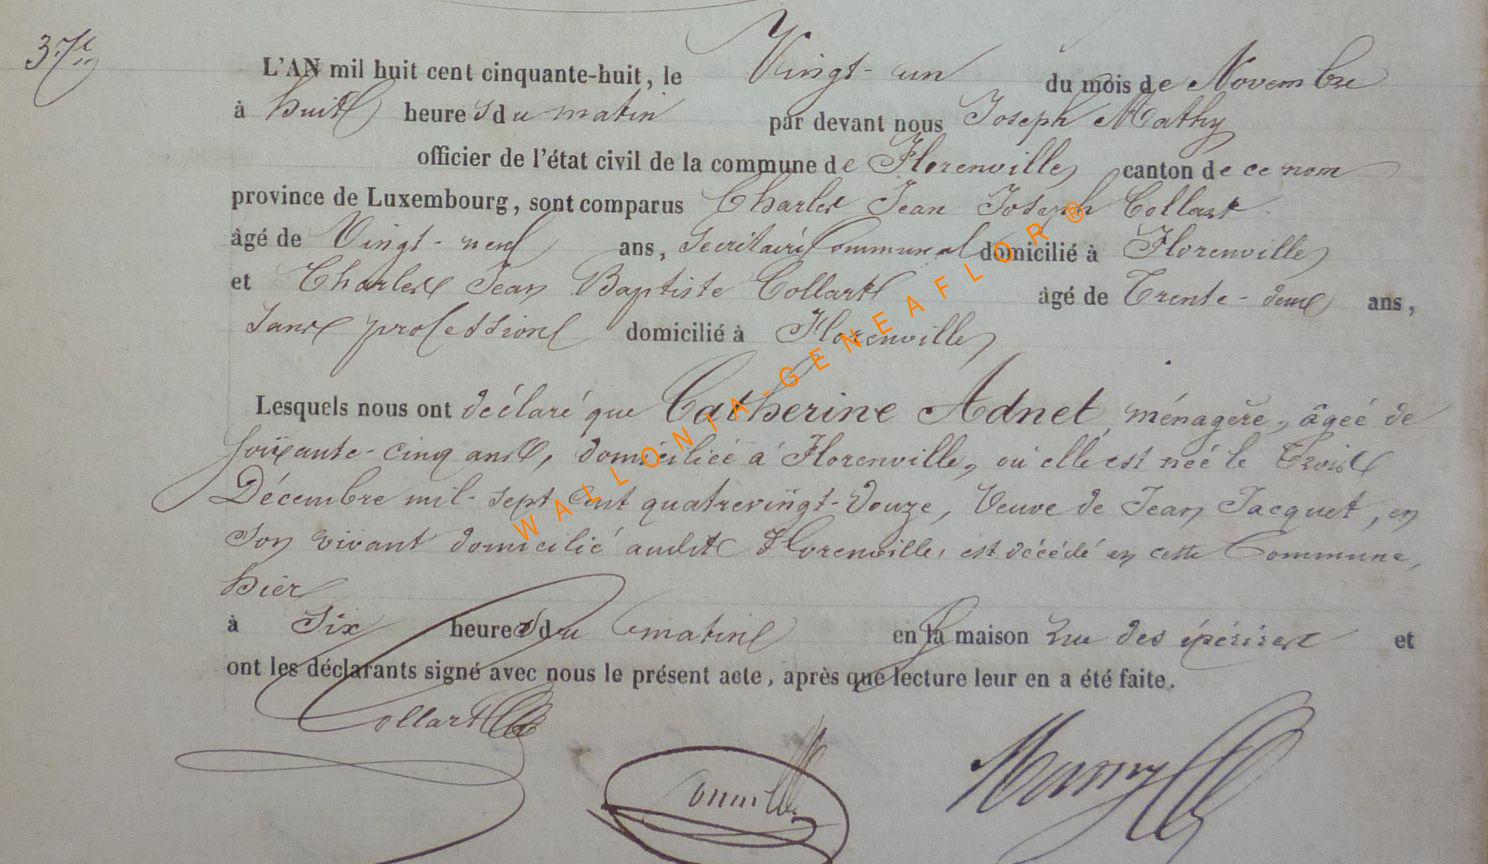 37e
L'AN mil huit cent cinquante-huit, le Vingt-un du mois de Novembre
à huit heures du matin par devant nous Joseph Mathy
officier de l'état civil de la commune de Florenville, canton de ce nom
province de Luxembourg, sont comparus Charles Jean Joseph Collart
âgé de Vingt-neuf ans, Secrétaire Communal domicilié à Florenville
et Charles Jean Baptiste Collart âgé de Trente-deux ans,
Sans profession domicilié à Florenville
Lesquels nous ont déclaré que Catherine Adnet, ménagère, âgée de
soixante-cinq ans, domiciliée à Florenville, où elle est née le trois
Décembre mil-sept cent quatrevingt-douze, Veuve de Jean Jacquet, en
son vivant domicilié audit Florenville, est décédé en cette Commune,
hier
à Six heures du matin en la maison rue des et
ont les déclarants signé avec nous le présent acte, après que lecture leur en a été faite.
Collart
WALLONIA-GENEAFLOR®